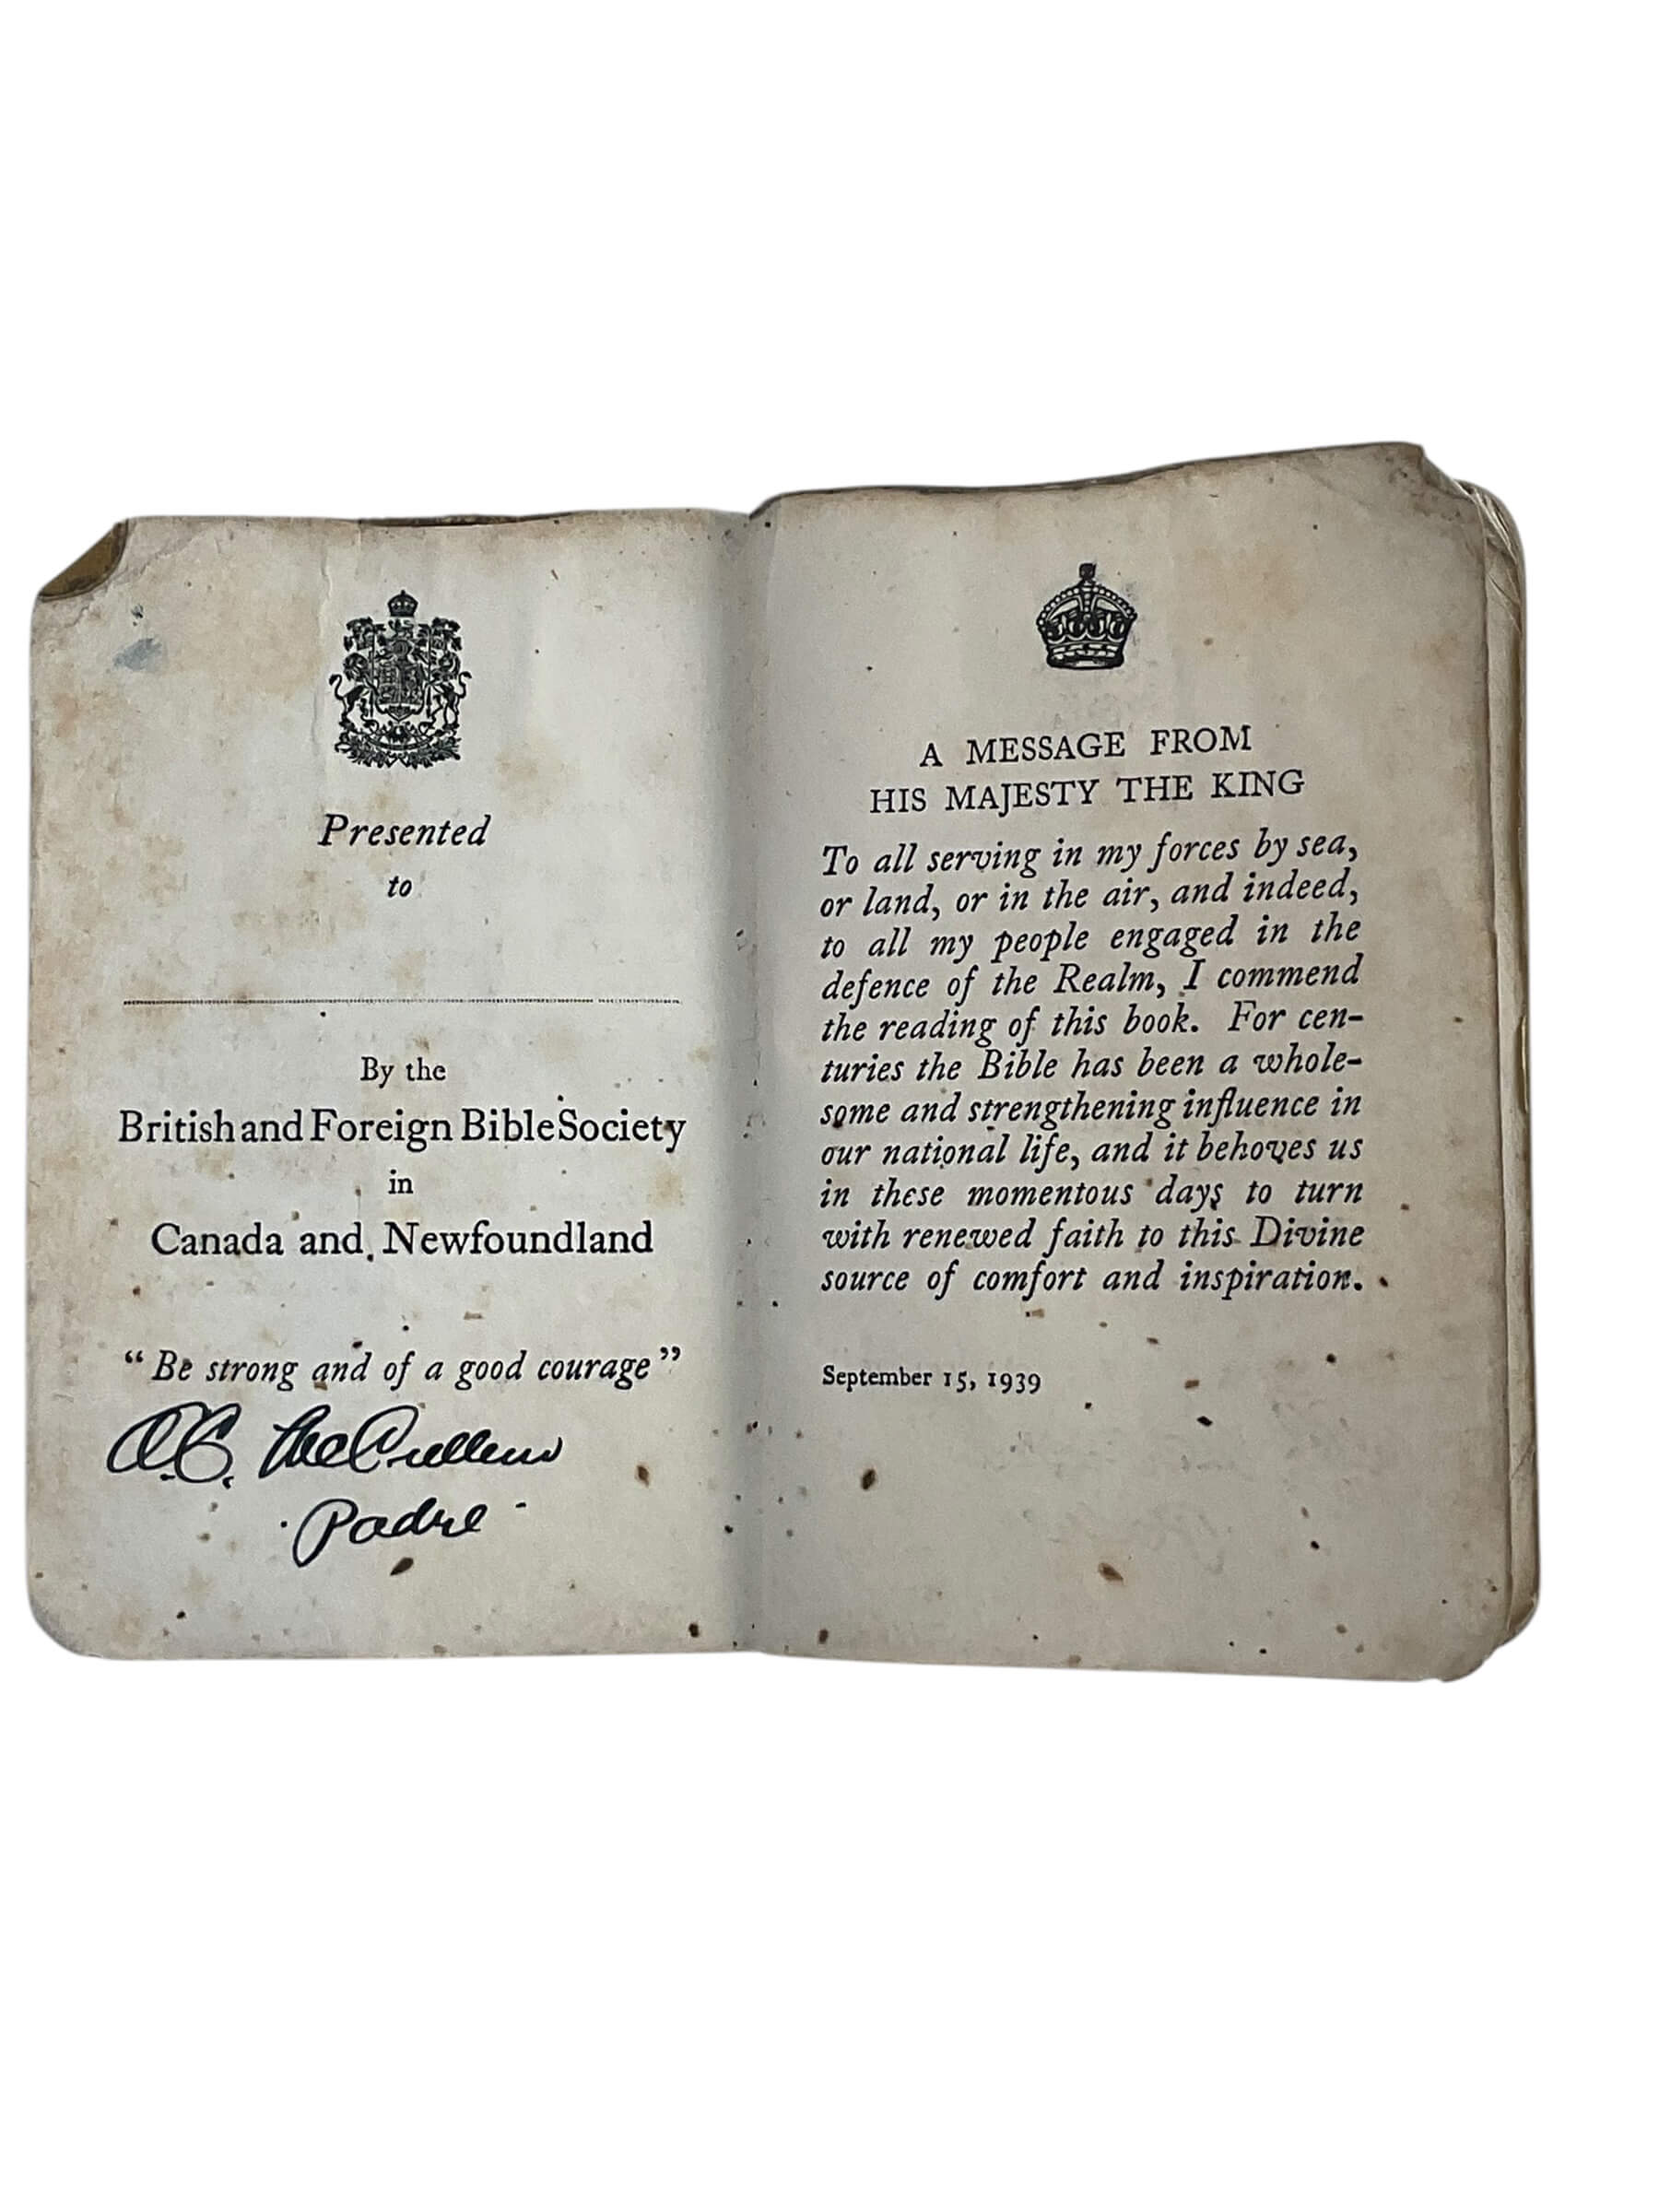 Presented
to
By the
British and Foreign Bible Society
in
Canada and Newfoundland
“Be strong and of a good courage”
Padre
A MESSAGE FROM
HIS MAJESTY THE KING
To all serving in my forces by sea,
or land, or in the air, and indeed,
to all my people engaged in the
defence of the Realm, I commend
the reading of this book. For cen-
turies the Bible has been a whole-
some and strengthening influence in
our national life, and it behoves us
in these momentous days to turn
with renewed faith to this Divine
source of comfort and inspiration.
September 15, 1939